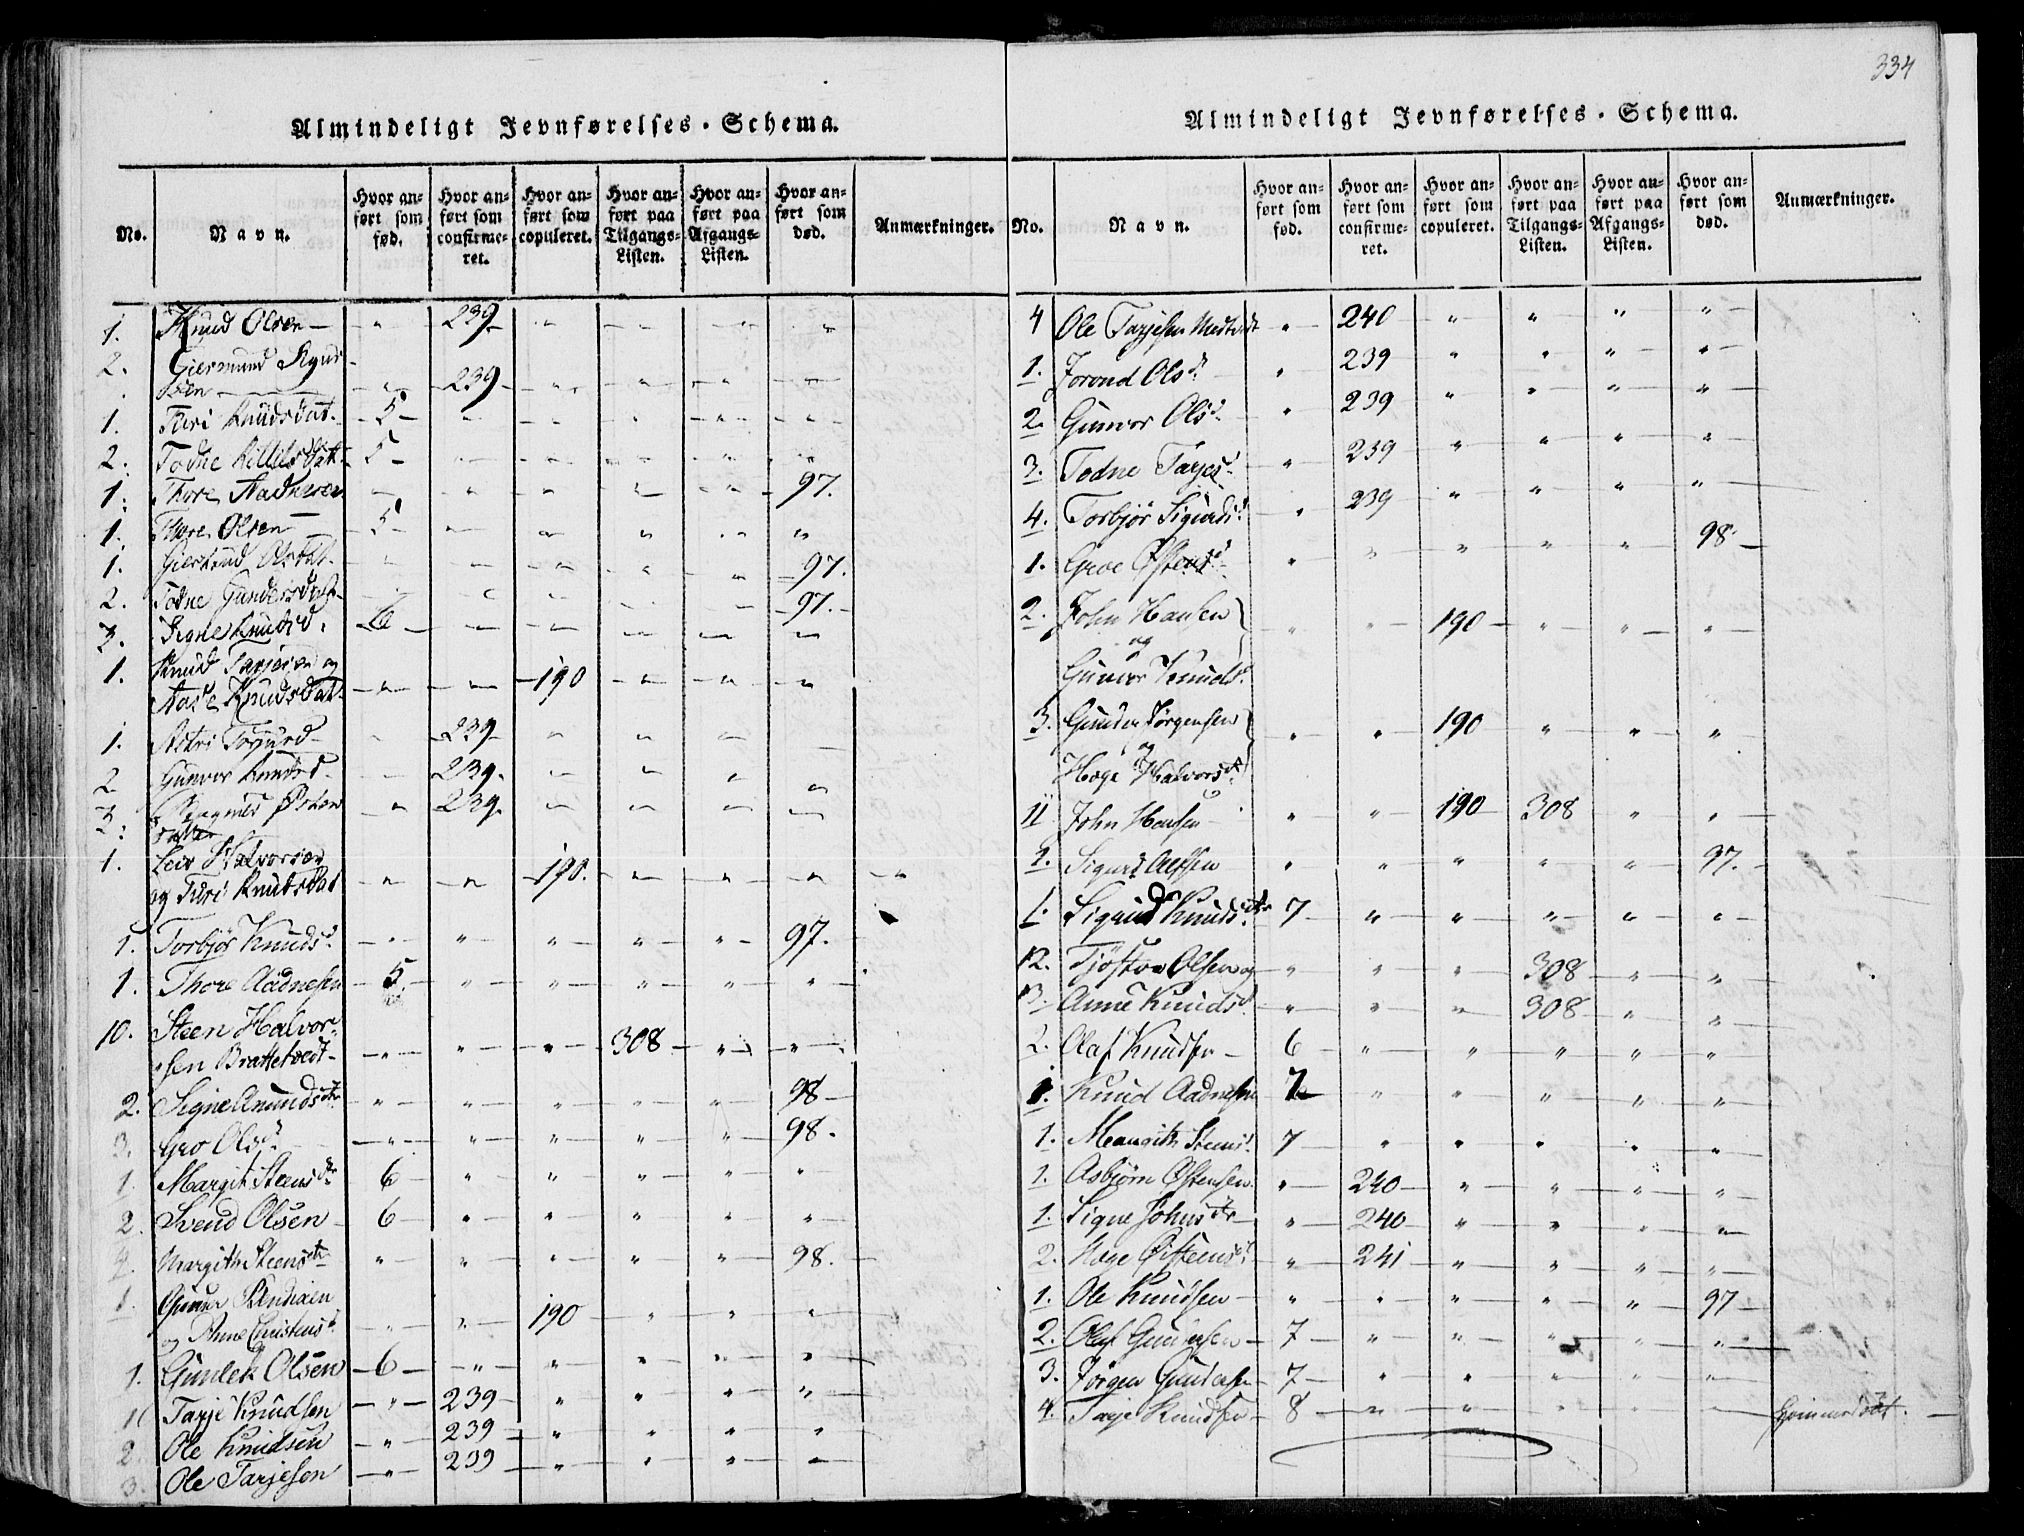 334
Almindeligt Jevnførelses-Schema.
No. Navn. Hvor anført som fød. Hvor anført som confirmeret. Hvor anført som copuleret. Hvor anført paa Tilgangs-Listen. Hvor anført paa Afgangs-Listen. Hvor anført som død. Anmærkninger.
1. Knud Olsen - " - 239 - " - " - " - "
2. Giermund Knud-
sen - " - 239 - " - " - " - "
1. Turi Knudsdat. - 5 - " - " - " - " - "
2. Todne Killilsdatt. - 5 - " - " - " - " - "
1. Thore Aadnesen - " - " - " - " - " - 97.
1. Thore Olsen - 5 - " - " - " - " - "
1. Giertrud Olsdat. - " - " - " - " - " - 97.
2. Todne Gundersdat - " - " - " - " - " - 97. -
3. Signe Knutsd. - 6 - " - " - " - " - "
1. Knud Tarjesen og
Aase Knudsdat. - " - " - 190 - " - " - "
1. Astri - " - 239 - " - " - " -
2 Gunvor Knudsd. - " - 239. - " - " - " - "
3. Østen
datter - " - 239. - " - " - " - "
1. Leiv Halvorsen
og Turi Knutsdat - " - " - 190. - " - " - " - "
1. Torbjør Knudsd. - " - " - " - " - " - 97.
1. Thore Aadnesen - 5. - " - " - " - " - "
10. Steen Halvor-
sen Brattetvedt - " - " - " - 308 - " - "
2. Signe Anundsdtr - " - " - " - " - " - 98 -
3. Gro Olsd. - " - " - " - " - " - 98.
1. Margit Steensdtr. 6 - " - " - " - " - "
2. Svend Olsen - 6 - " - " - " - " - "
Margith Steensdtr " - " - " - " - " - 98.
1. Gunner
og Anne Christensd. " - " - 190 - " - " - "
1. Gunlek Olsen - 6 - " - " - " - " - "
1. Tarje Knudsen - " - 239 - " - " - " - "
2. Ole Knudsen - " - 239 - " - " - " - "
3. Ole Tarjesen - " - 239 - " - " - " - "
Almindeligt Jevnførelses-Schema.
No. Navn. Hvor anført som fød. Hvor anført som confirmeret. Hvor anført som copuleret. Hvor anført paa Tilgangs-Listen. Hvor anført paa Afgangs-Listen. Hvor anført som død. Anmærkninger.
4 Ole Tarjesen " - 240 - " - " - " - "
1. Jorond Olsd. " - 239 - " - " - " - "
2. Gunvor Olsd. - " - 239 - " - " - " - "
3. Todne Tarjesd. - " - 239 - " - " - " - "
4. Torbjør Sigurdsd. " - 239 - " - " - " - "
1. Groe Østensd. " - " - " - " - " - 98. -
2. John Hansen
og
Gunvor Knudsd. " - " - 190 - " - " - "
3. Gunder Jørgensen
og
Hæge Halvorsdt. " - " - 190 - " - " - "
11 John Hansen - " - " - 190 - 308 - " - "
Sigurd " - " - " - " - " - 97. -
1. Sigrid Knudsdtr. 7 - " - " - " - " - "
12. Tjøstov Olsen og " - " - " - 308 - " - "
13. Anne Knudsd. " - " - " - 308 - " - "
2. Olaf Knudsen - 6 - " - " - " - " - "
1. Knud Aadnesen 7 - " - " - " - " - "
1. Maugith Steensd. 7 - " - " - " - " - "
1. Asbjørn Østensen " - 240 - " - " - " - "
1. Signe Johnsdtr - " - 240 - " - " - " - "
2. Hæge Øisteensdt. " - 241 - " - " - " - "
1. Ole Knudsen - " - " - " - " - " - 97 -
2. Olaf Gundersen - 7 - " - " - " - " - "
3. Jørgen Gundersen - 7 - " - " - " - " - "
4. Tarje Knudsen - 8 - " - " - " - " - "